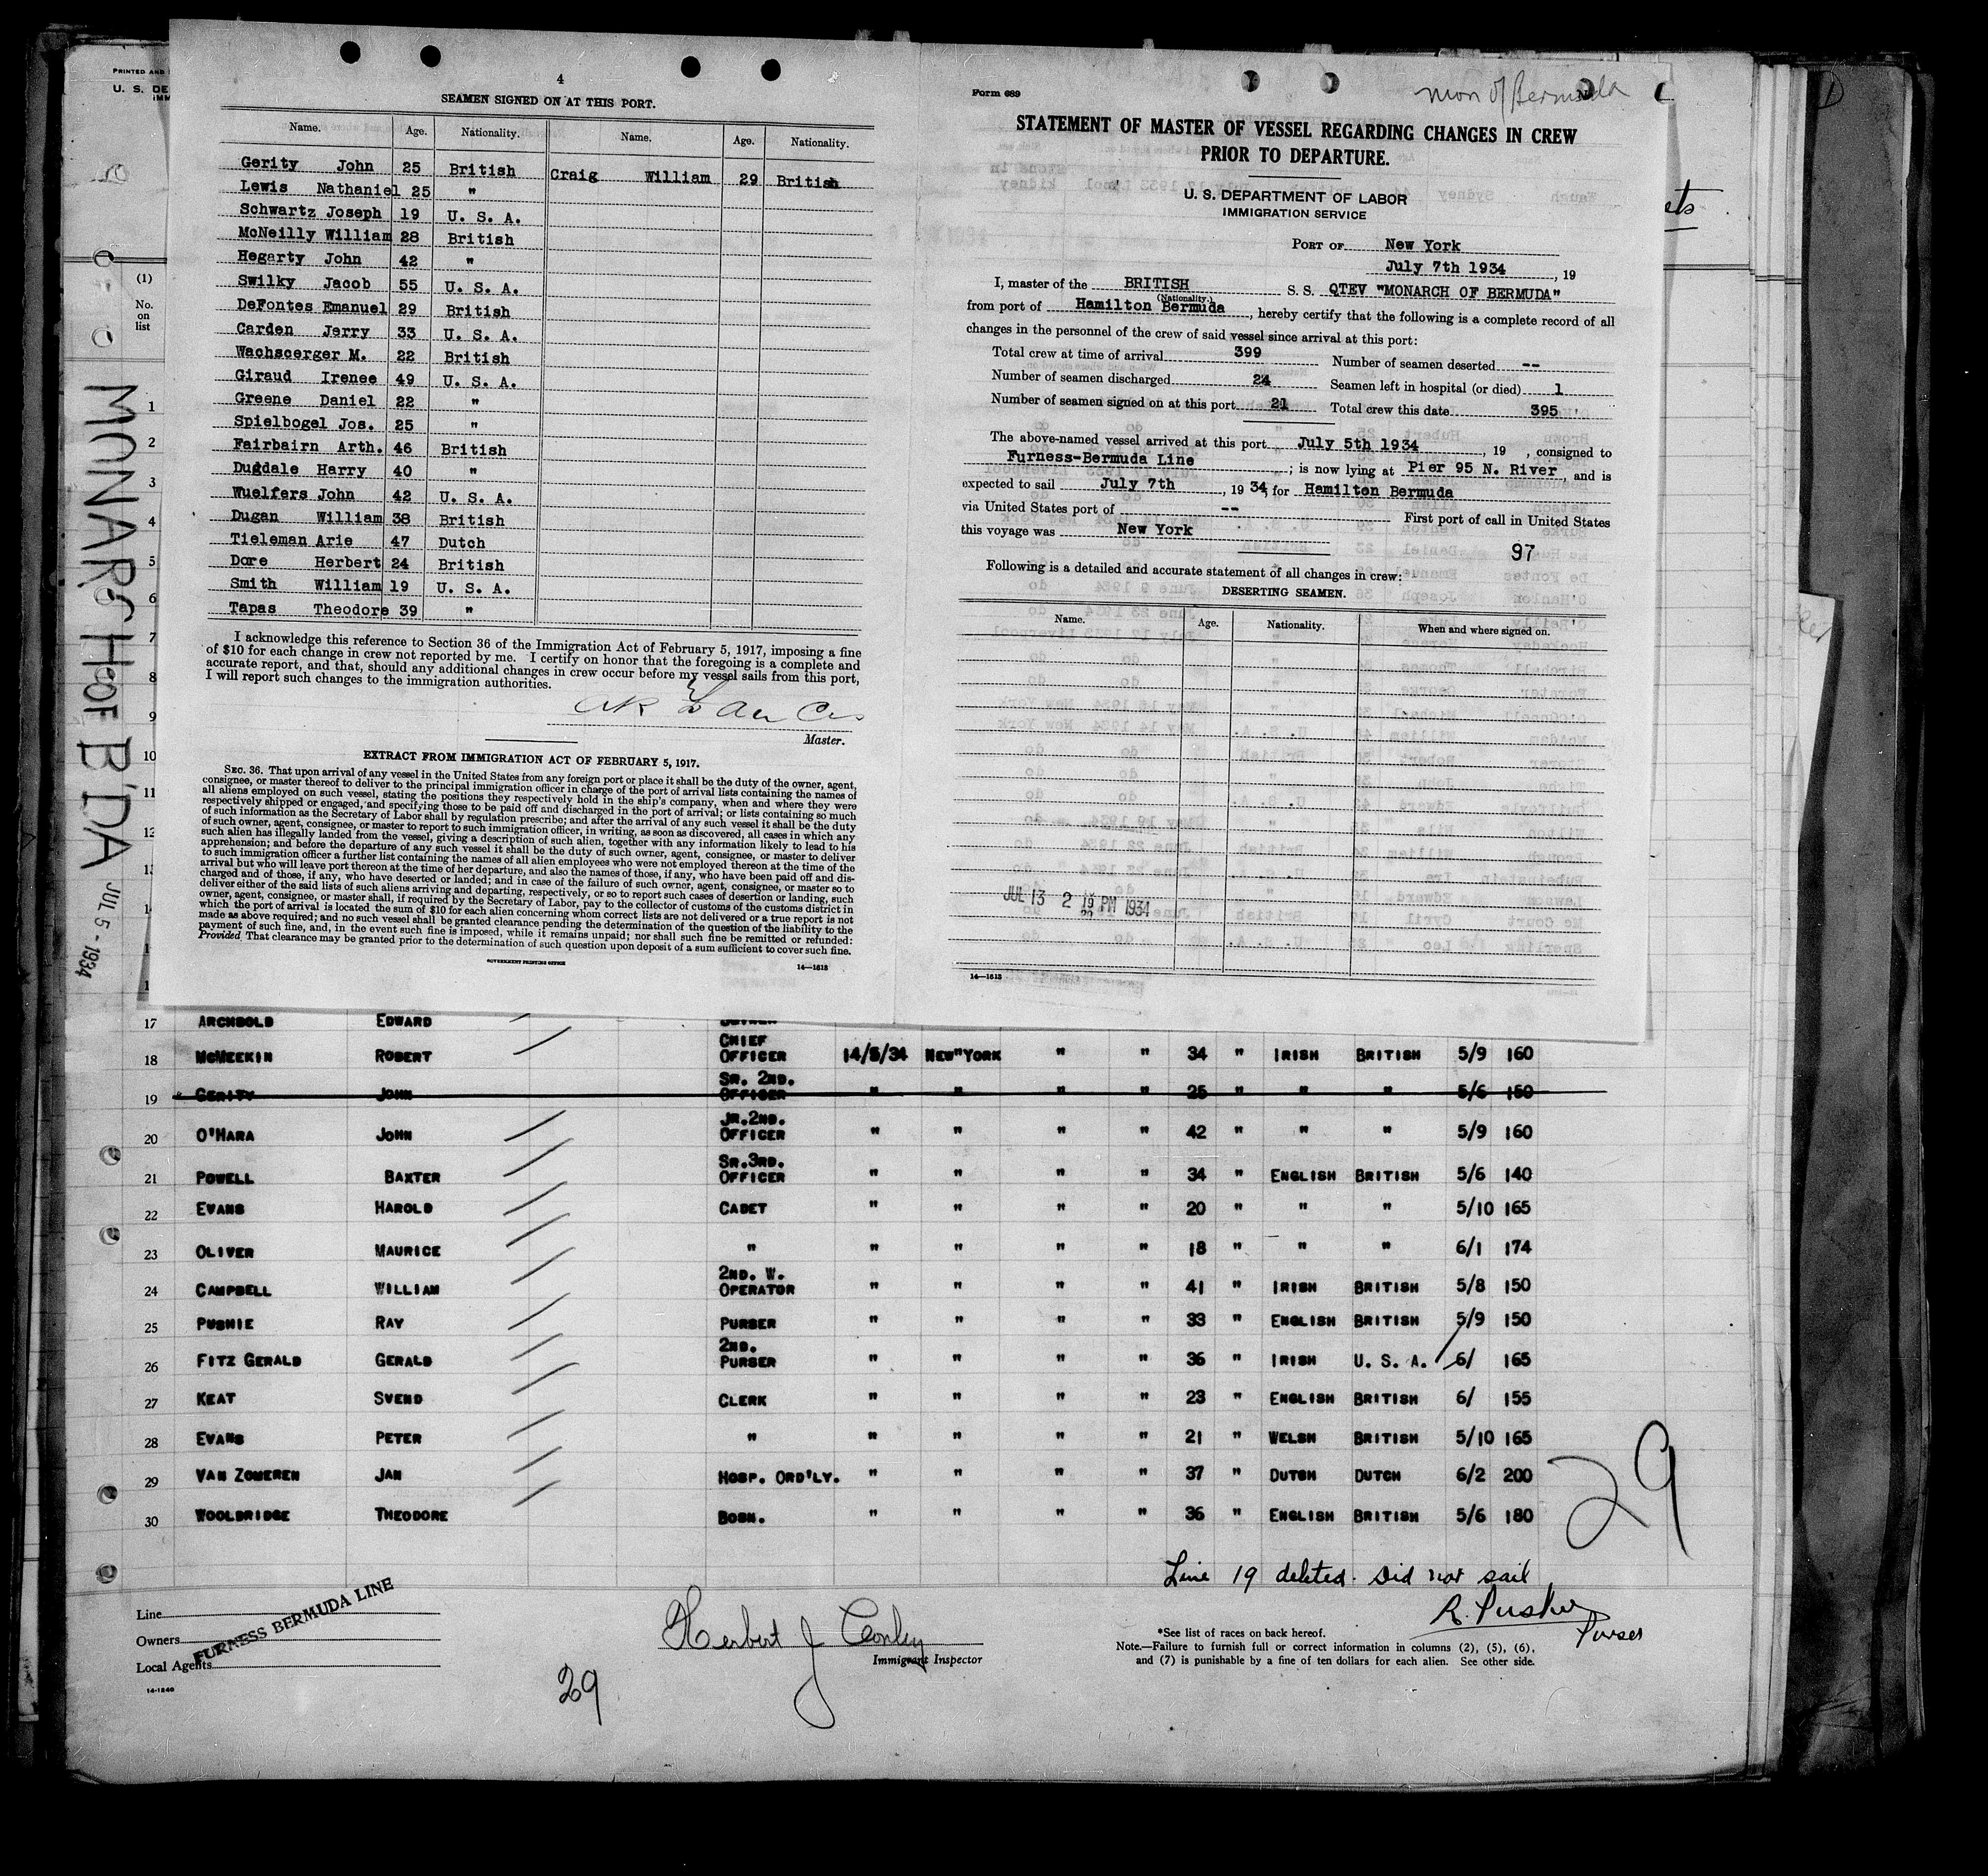 PRINTED AND
U. S. DE
IMM
(1)
No.
on
list
MONARCH OF B'DA JUL 5 - 1934
4
SEAMEN SIGNED ON AT THIS PORT.
Name. Age. Nationality. Name. Age. Nationality.
Gerity John 25 British Craig William 29 British
Lewis Nathaniel 25 "
Schwartz Joseph 19 U. S. A.
McNeilly William 28 British
Hegarty John 42 "
Swilky Jacob 55 U. S. A.
DeFontes Emanuel 29 British
Carden Jerry 33 U. S. A.
Wachscerger M. 22 British
Giraud Irenee 49 U. S. A.
Greene Daniel 22 "
Spielbogel Jos. 25 "
Fairbairn Arth. 46 British
Dugdale Harry 40 "
Wuelfers John 42 U. S. A.
Dugan William 38 British
Tieleman Arie 47 Dutch
Dore Herbert 24 British
Smith William 19 U. S. A.
Tapas Theodore 39 "
I acknowledge this reference to Section 36 of the Immigration Act of February 5, 1917, imposing a fine
of $10 for each change in crew not reported by me. I certify on honor that the foregoing is a complete and
accurate report, and that, should any additional changes in crew occur before my vessel sails from this port,
I will report such changes to the immigration authorities.
Master.
EXTRACT FROM IMMIGRATION ACT OF FEBRUARY 5, 1917.
SEC. 36. That upon arrival of any vessel in the United States from any foreign port or place it shall be the duty of the owner, agent,
consignee, or master thereof to deliver to the principal immigration officer in charge of the port of arrival lists containing the names of
all aliens employed on such vessel, stating the positions they respectively hold in the ship's company, when and where they were
respectively shipped or engaged, and specifying those to be paid off and discharged in the port of arrival; or lists containing so much
of such information as the Secretary of Labor shall by regulation prescribe; and after the arrival of any such vessel it shall be the duty
of such owner, agent, consignee, or master to report to such immigration officer, in writing, as soon as discovered, all cases in which any
such alien has illegally landed from the vessel, giving a description of such alien, together with any information likely to lead to his
apprehension; and before the departure of any such vessel it shall be the duty of such owner, agent, consignee, or master to deliver
to such immigration officer a further list containing the names of all alien employees who were not employed thereon at the time of the
arrival but who will leave port thereon at the time of her departure, and also the names of those, if any, who have been paid off and dis-
charged and of those, if any, who have deserted or landed; and in case of the failure of such owner, agent, consignee, or master so to
deliver either of the said lists of such aliens arriving and departing, respectively, or so to report such cases of desertion or landing, such
owner, agent, consignee, or master shall, if required by the Secretary of Labor, pay to the collector of customs of the customs district in
which the port of arrival is located the sum of $10 for each alien concerning whom correct lists are not delivered or a true report is not
made as above required; and no such vessel shall be granted clearance pending the determination of the question of the liability to the
payment of such fine, and, in the event such fine is imposed, while it remains unpaid; nor shall such fine be remitted or refunded:
Provided That clearance may be granted prior to the determination of such question upon deposit of a sum sufficient to cover such fine.
GOVERNMENT PRINTING OFFICE 14—1613
Form 689
Mon of Bermuda
STATEMENT OF MASTER OF VESSEL REGARDING CHANGES IN CREW
PRIOR TO DEPARTURE.
U. S. DEPARTMENT OF LABOR
IMMIGRATION SERVICE
PORT OF New York
July 7th 1934, 19
I, master of the BRITISH S. S. QTEV "MONARCH OF BERMUDA"
(Nationality.)
from port of Hamilton Bermuda, hereby certify that the following is a complete record of all
changes in the personnel of the crew of said vessel since arrival at this port:
Total crew at time of arrival 399 Number of seamen deserted --
Number of seamen discharged 24 Seamen left in hospital (or died) 1
Number of seamen signed on at this port 21 Total crew this date 395
The above-named vessel arrived at this port July 5th 1934, 19 , consigned to
Furness-Bermuda Line; is now lying at Pier 95 N. River, and is
expected to sail July 7th, 1934, for Hamilton Bermuda
via United States port of -- First port of call in United States
this voyage was New York
97
Following is a detailed and accurate statement of all changes in crew:
DESERTING SEAMEN.
Name. Age. Nationality. When and where signed on.
JUL 13 2 19 PM 1934
14—1613
17 ARCHBOLD EDWARD
18 McMEEKIN ROBERT CHIEF OFFICER 14/5/34 NEW YORK " " 34 " IRISH BRITISH 5/9 160
19 GERITY JOHN SR. 2ND. OFFICER " " " " 25 " " " 5/6 150
20 O'HARA JOHN JR.2ND. OFFICER " " " " 42 " " " 5/9 160
21 POWELL BAXTER SR.3RD. OFFICER " " " " 34 " ENGLISH BRITISH 5/6 140
22 EVANS HAROLD CADET " " " " 20 " " " 5/10 165
23 OLIVER MAURICE " " " " " 18 " " " 6/1 174
24 CAMPBELL WILLIAM 2ND. W. OPERATOR " " " " 41 " IRISH BRITISH 5/8 150
25 PUSHIE RAY PURSER " " " " 33 " ENGLISH BRITISH 5/9 150
26 FITZ GERALD GERALD 2ND. PURSER " " " " 36 " IRISH U. S. A. 6/ 165
27 KEAT SVEND CLERK " " " " 23 " ENGLISH BRITISH 6/ 155
28 EVANS PETER " " " " " 21 " WELSH BRITISH 5/10 165
29 VAN ZOMEREN JAN HOSP. ORD'LY. " " " " 37 " DUTCH DUTCH 6/2 200
30 WOOLDRIDGE THEODORE BOSN. " " " " 36 " ENGLISH BRITISH 5/6 180
29
Line 19 deleted. Did not sail
R. Pushie
Purser
Line
Owners
Local Agents
FURNESS BERMUDA LINE
14-1240
29
Herbert J Conley
Immigrant Inspector
*See list of races on back hereof.
Note.—Failure to furnish full or correct information in columns (2), (5), (6),
and (7) is punishable by a fine of ten dollars for each alien. See other side.